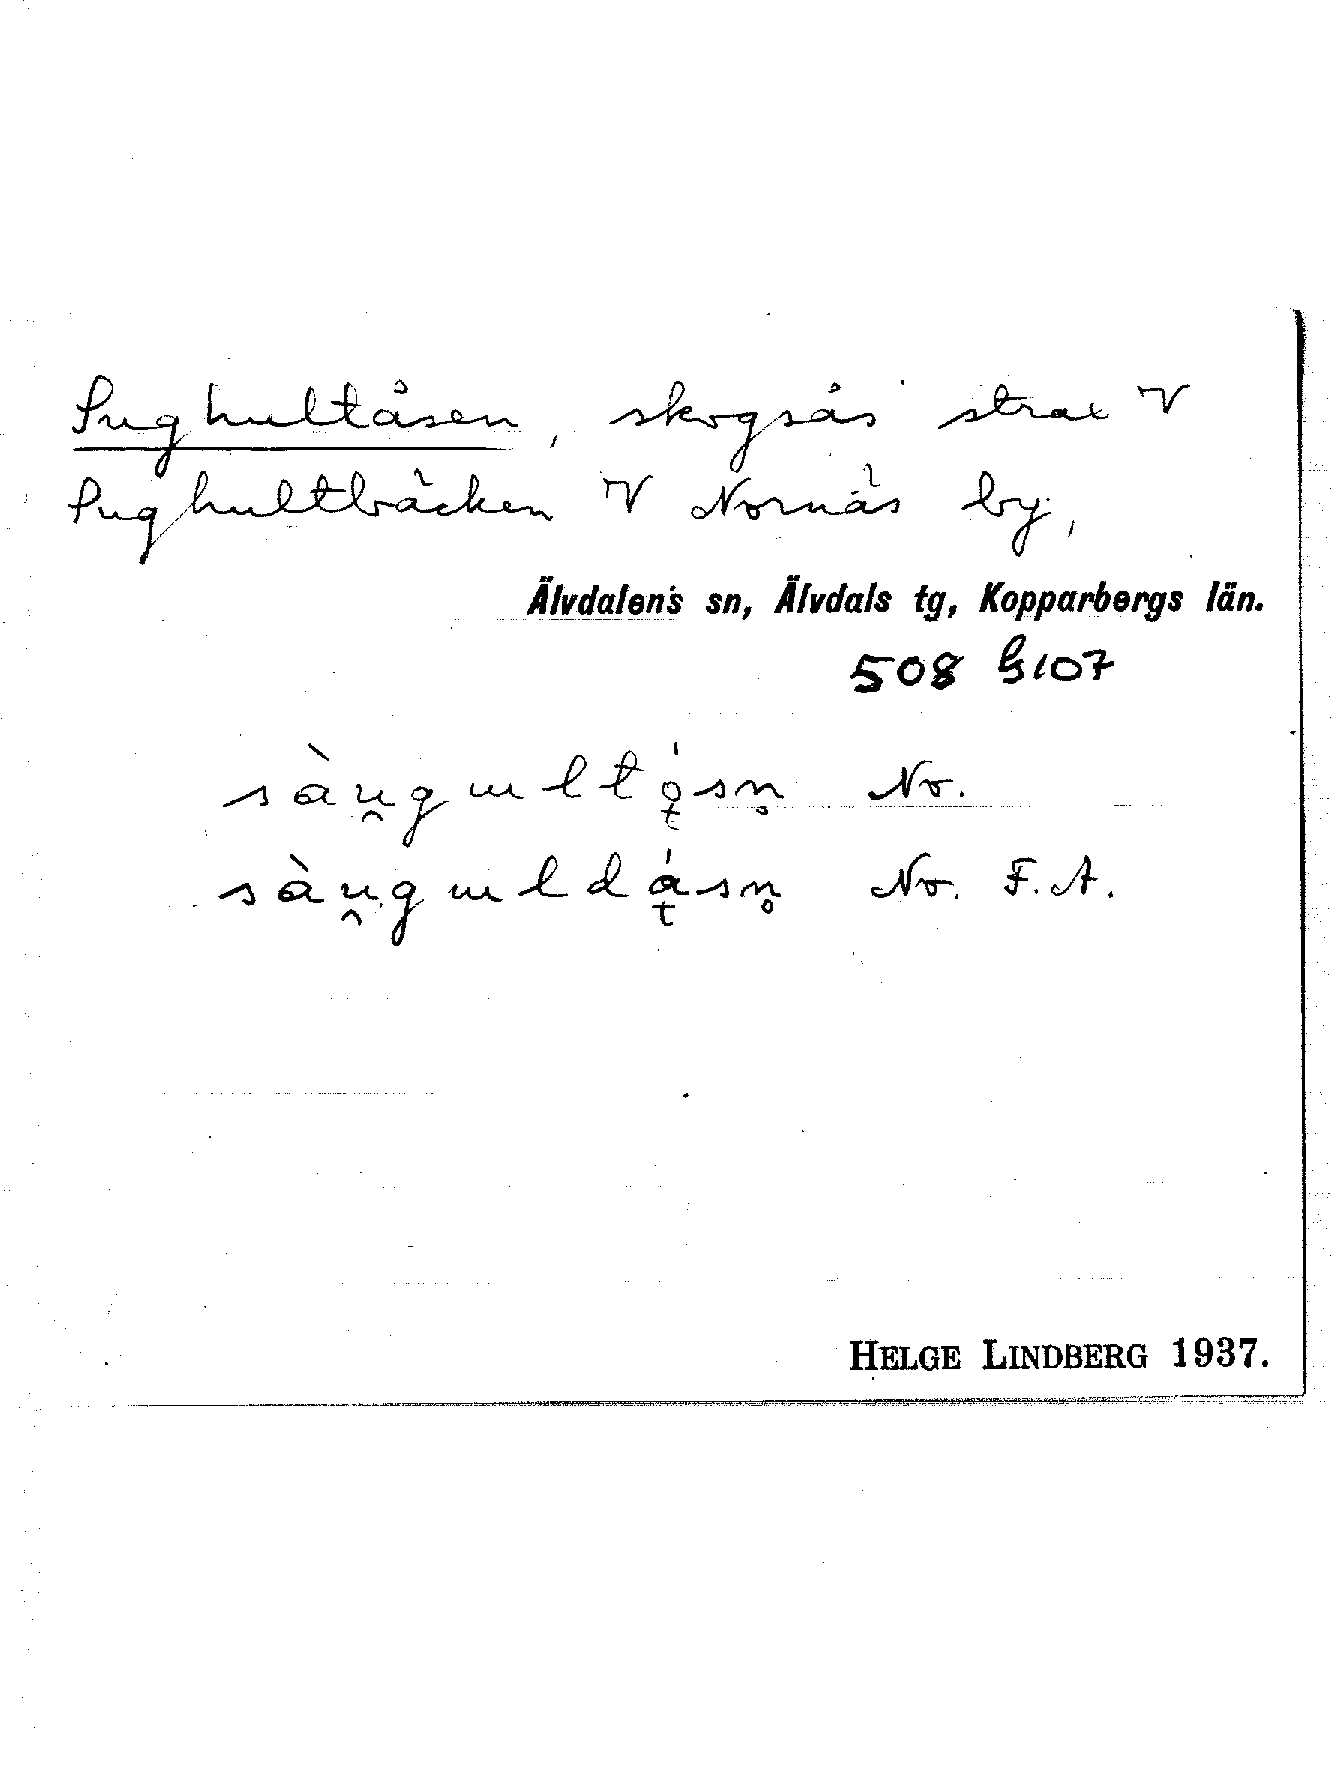 Sughultåsen, skogsås strax V
Sughultbäcken V Nornäs by,
Älvdalens sn, Älvdals tg, Kopparbergs län.
508 G107
sàu̯gɯltǫ́sn̥ No.
sàu̯gɯldá̱sn̥ No. F. A.
HELGE LINDBERG 1937.